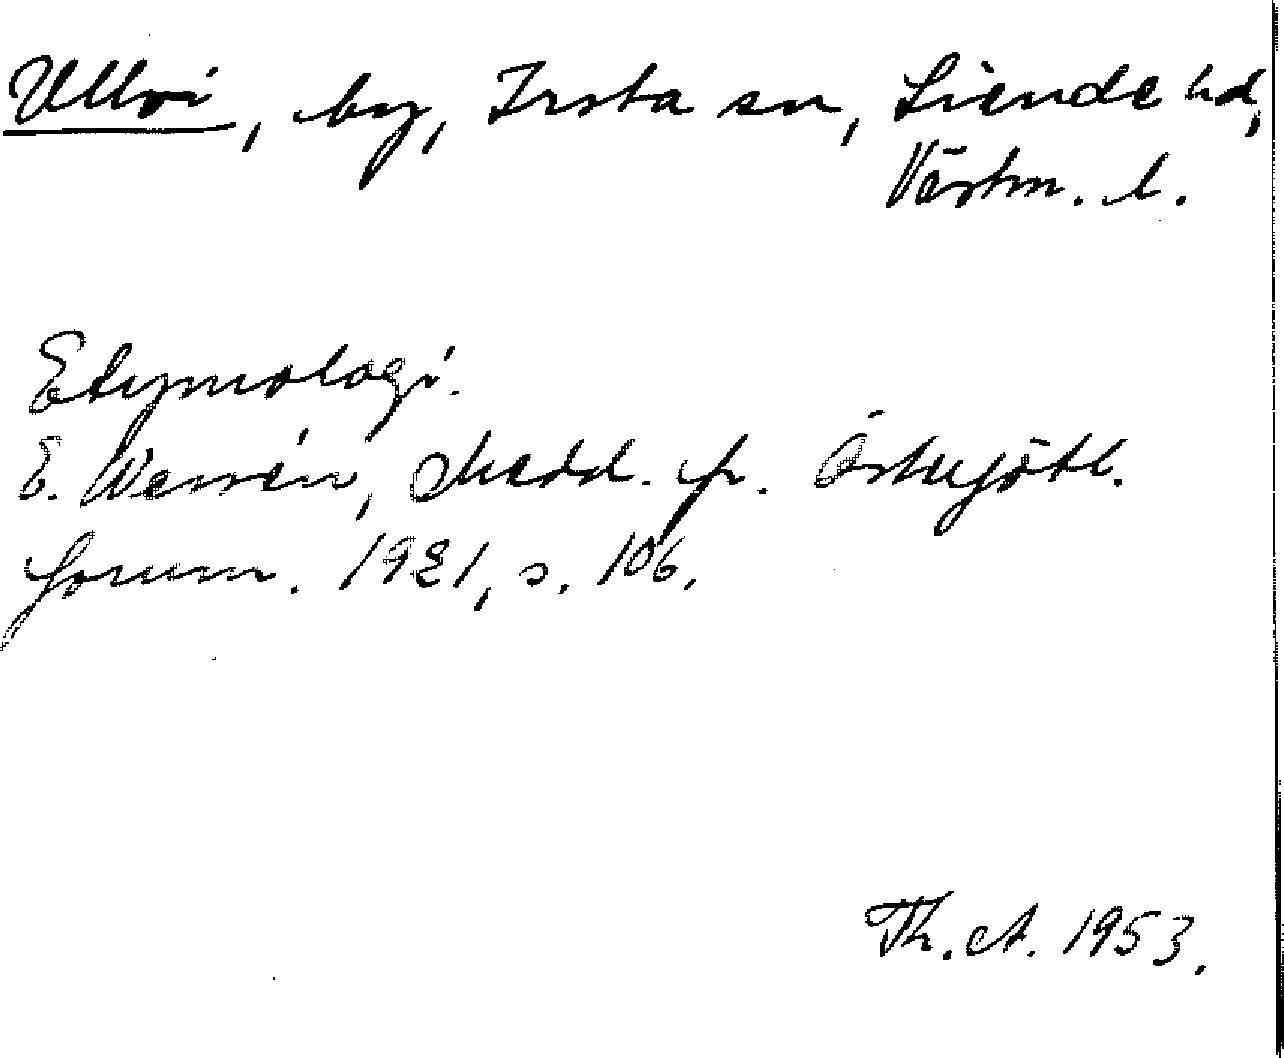 Ullvi, by, Irsta sn, Siende hd,
Västm. l.
Etymologi.
E. Wessén, Medd. fr. Östergötl.
fornm. 1921, s. 106.
Th. A. 1953.